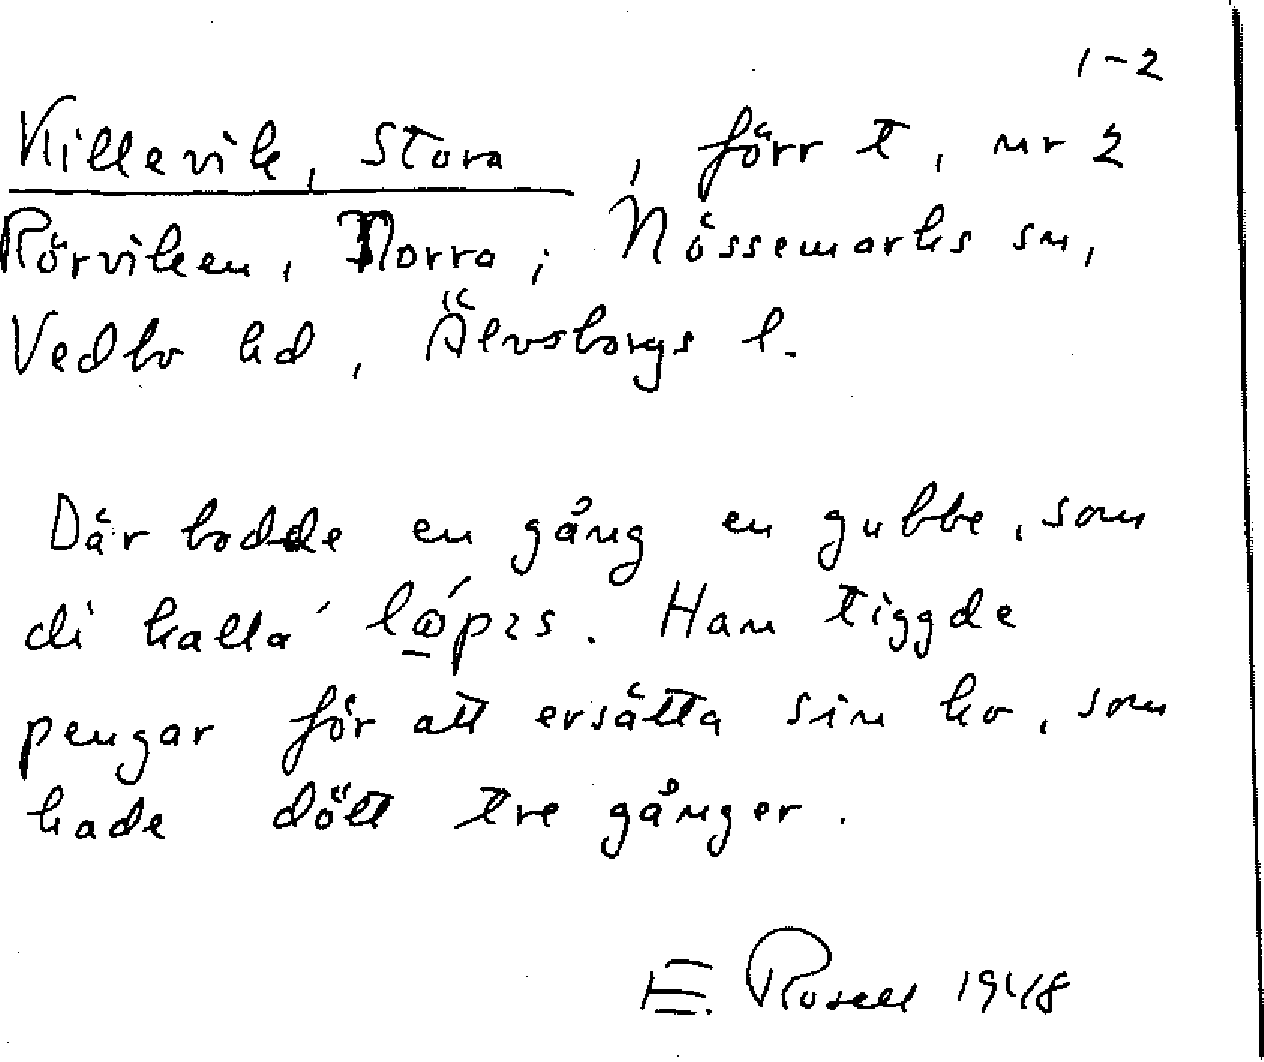 1-2
Killevik, Stora, förr t, nr 2
Rörviken, Norra; Nössemarks sn,
Vedbo hd, Älvsborgs l.
Där bodde en gång en gubbe, som
di kalla´ . Han tiggde
pengar för att ersätta sin ko, som
hade dött tre gånger.
E. Rosell 1948